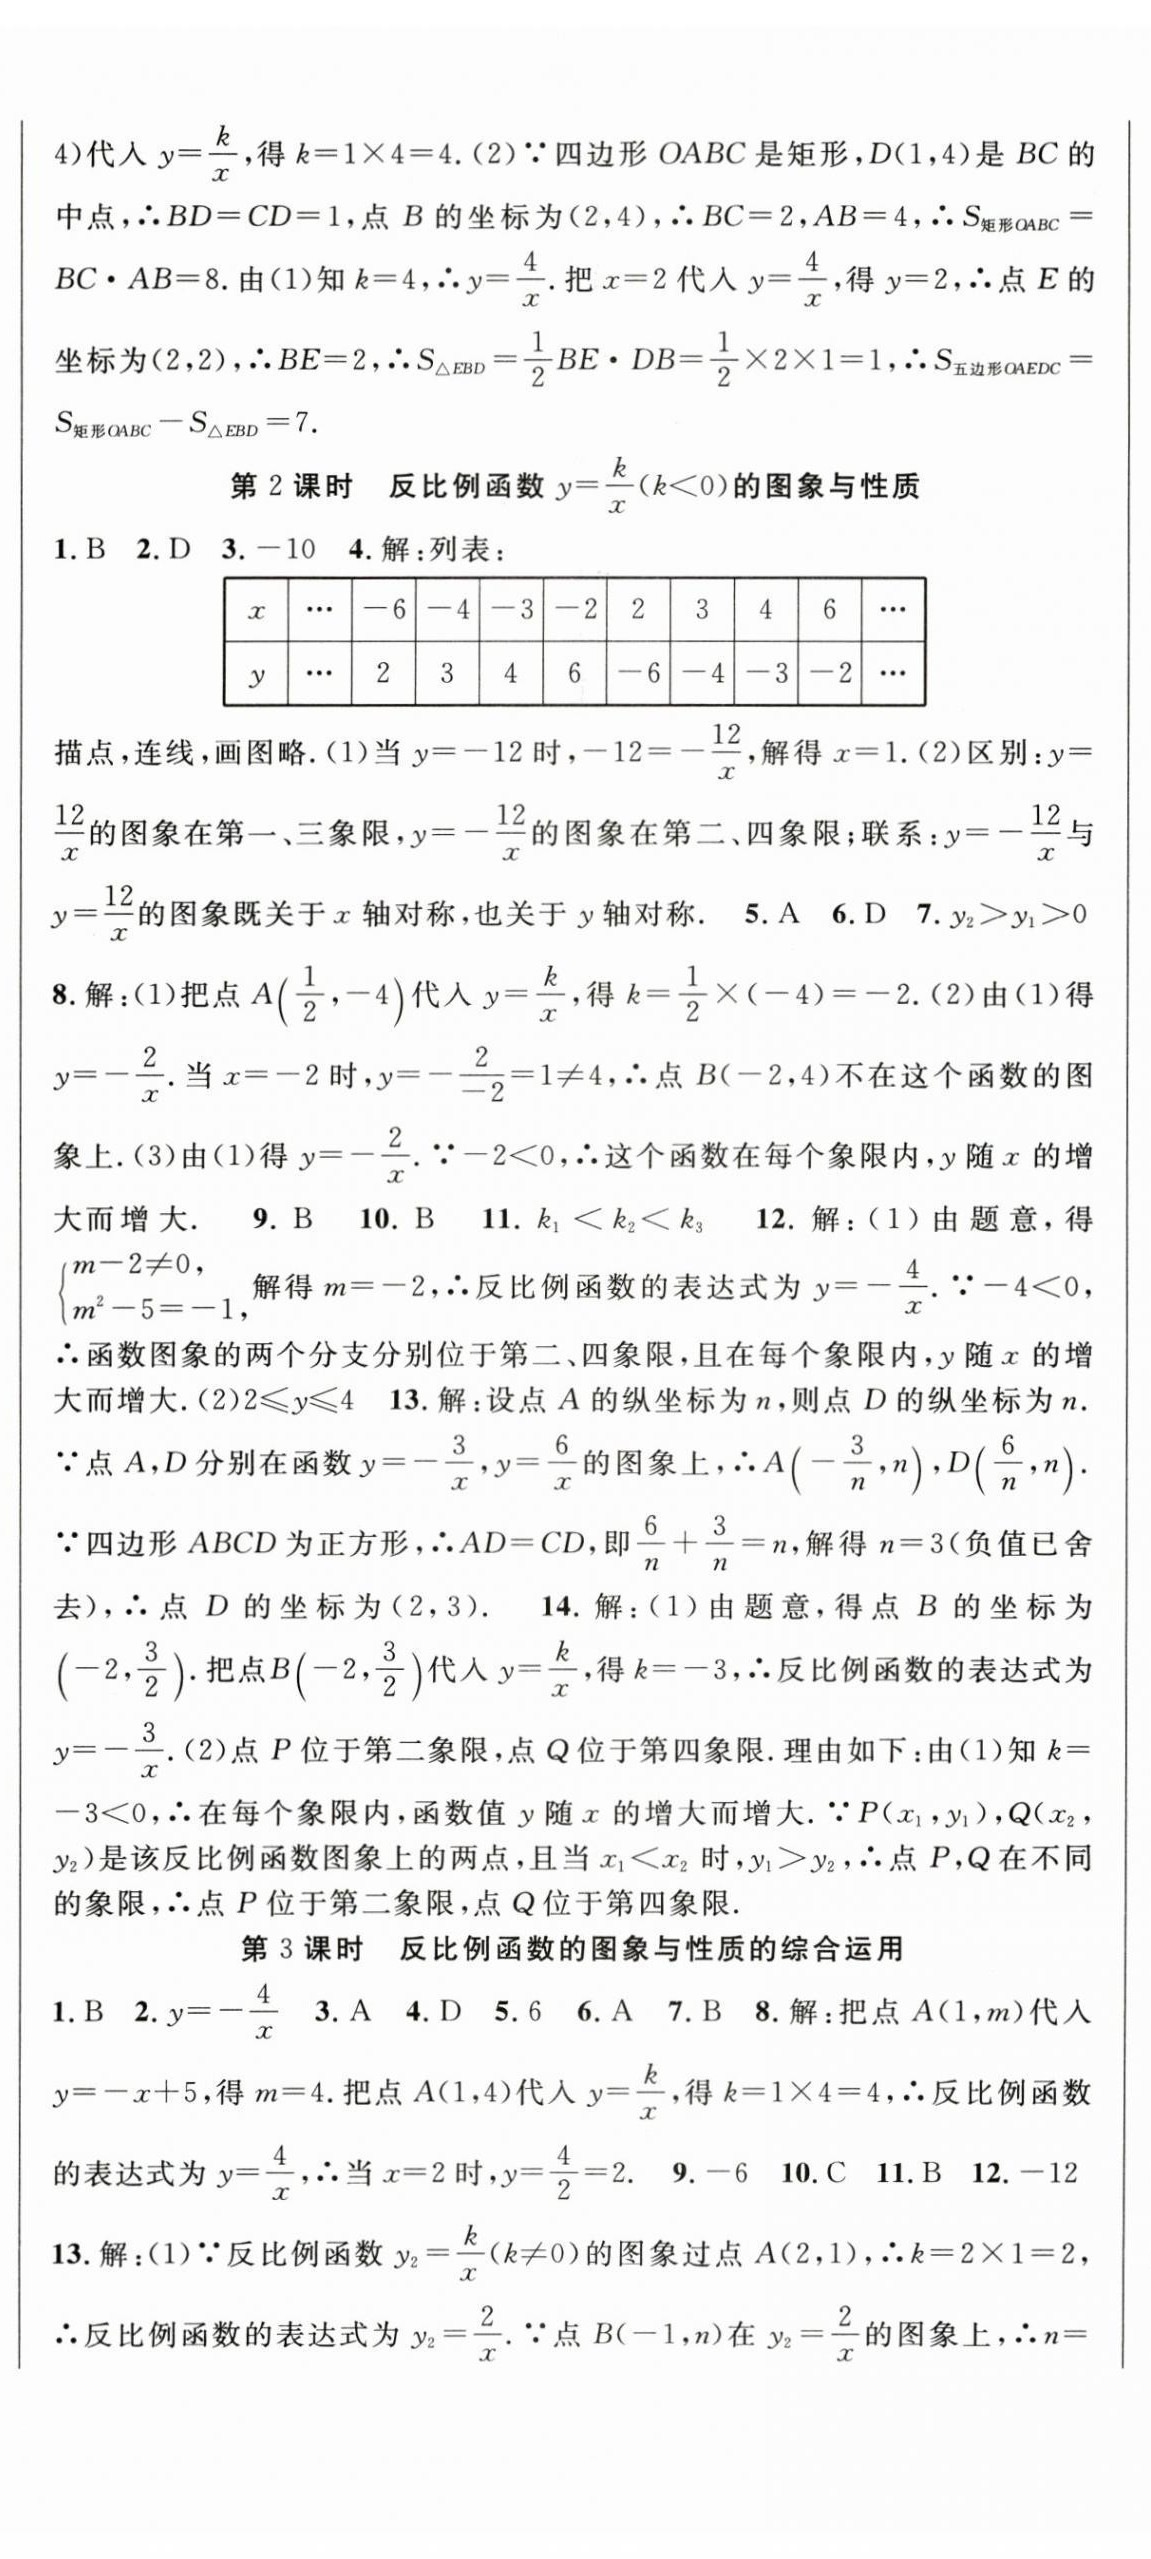 4)代入 y=k/x,得 k=1×4=4.(2)∵四边形 OABC 是矩形,D(1,4)是 BC 的
中点,∴BD=CD=1,点 B 的坐标为(2,4),∴BC=2,AB=4,∴S矩形OABC=
BC·AB=8.由(1)知 k=4,∴y=4/x.把 x=2 代入 y=4/x,得 y=2,∴点 E 的
坐标为(2,2),∴BE=2,∴S△EBD=1/2BE·DB=1/2×2×1=1,∴S五边形OAEDC=
S矩形OABC-S△EBD=7.
第 2 课时 反比例函数 y=k/x(k<0)的图象与性质
1. B 2. D 3. -10 4. 解:列表:
x … -6 -4 -3 -2 2 3 4 6 …
y … 2 3 4 6 -6 -4 -3 -2 …
描点,连线,画图略.(1)当 y=-12 时,-12=-12/x,解得 x=1.(2)区别:y=
12/x的图象在第一、三象限,y=-12/x的图象在第二、四象限;联系:y=-12/x与
y=12/x的图象既关于 x 轴对称,也关于 y 轴对称. 5. A 6. D 7. y₂>y₁>0
8. 解:(1)把点 A(1/2,-4)代入 y=k/x,得 k=1/2×(-4)=-2.(2)由(1)得
y=-2/x.当 x=-2 时,y=-2/-2=1≠4,∴点 B(-2,4)不在这个函数的图
象上.(3)由(1)得 y=-2/x.∵-2<0,∴这个函数在每个象限内,y 随 x 的增
大而增大. 9. B 10. B 11. k₁<k₂<k₃ 12. 解:(1)由题意,得
{m-2≠0, m²-5=-1, 解得 m=-2,∴反比例函数的表达式为 y=-4/x.∵-4<0,
∴函数图象的两个分支分别位于第二、四象限,且在每个象限内,y 随 x 的增
大而增大.(2)2≤y≤4 13. 解:设点 A 的纵坐标为 n,则点 D 的纵坐标为 n.
∵点 A,D 分别在函数 y=-3/x,y=6/x的图象上,∴A(-3/n,n),D(6/n,n).
∵四边形 ABCD 为正方形,∴AD=CD,即6/n+3/n=n,解得 n=3(负值已舍
去),∴点 D 的坐标为(2,3). 14. 解:(1)由题意,得点 B 的坐标为
(-2,3/2).把点B(-2,3/2)代入 y=k/x,得 k=-3,∴反比例函数的表达式为
y=-3/x.(2)点 P 位于第二象限,点 Q 位于第四象限.理由如下:由(1)知 k=
-3<0,∴在每个象限内,函数值 y 随 x 的增大而增大.∵P(x₁,y₁),Q(x₂,
y₂)是该反比例函数图象上的两点,且当 x₁<x₂ 时,y₁>y₂,∴点 P,Q 在不同
的象限,∴点 P 位于第二象限,点 Q 位于第四象限.
第 3 课时 反比例函数的图象与性质的综合运用
1. B 2. y=-4/x 3. A 4. D 5. 6 6. A 7. B 8. 解:把点 A(1,m)代入
y=-x+5,得 m=4.把点 A(1,4)代入 y=k/x,得 k=1×4=4,∴反比例函数
的表达式为 y=4/x,∴当 x=2 时,y=4/2=2. 9. -6 10. C 11. B 12. -12
13. 解:(1)∵反比例函数 y₂=k/x(k≠0)的图象过点 A(2,1),∴k=2×1=2,
∴反比例函数的表达式为 y₂=2/x.∵点 B(-1,n)在 y₂=2/x的图象上,∴n=